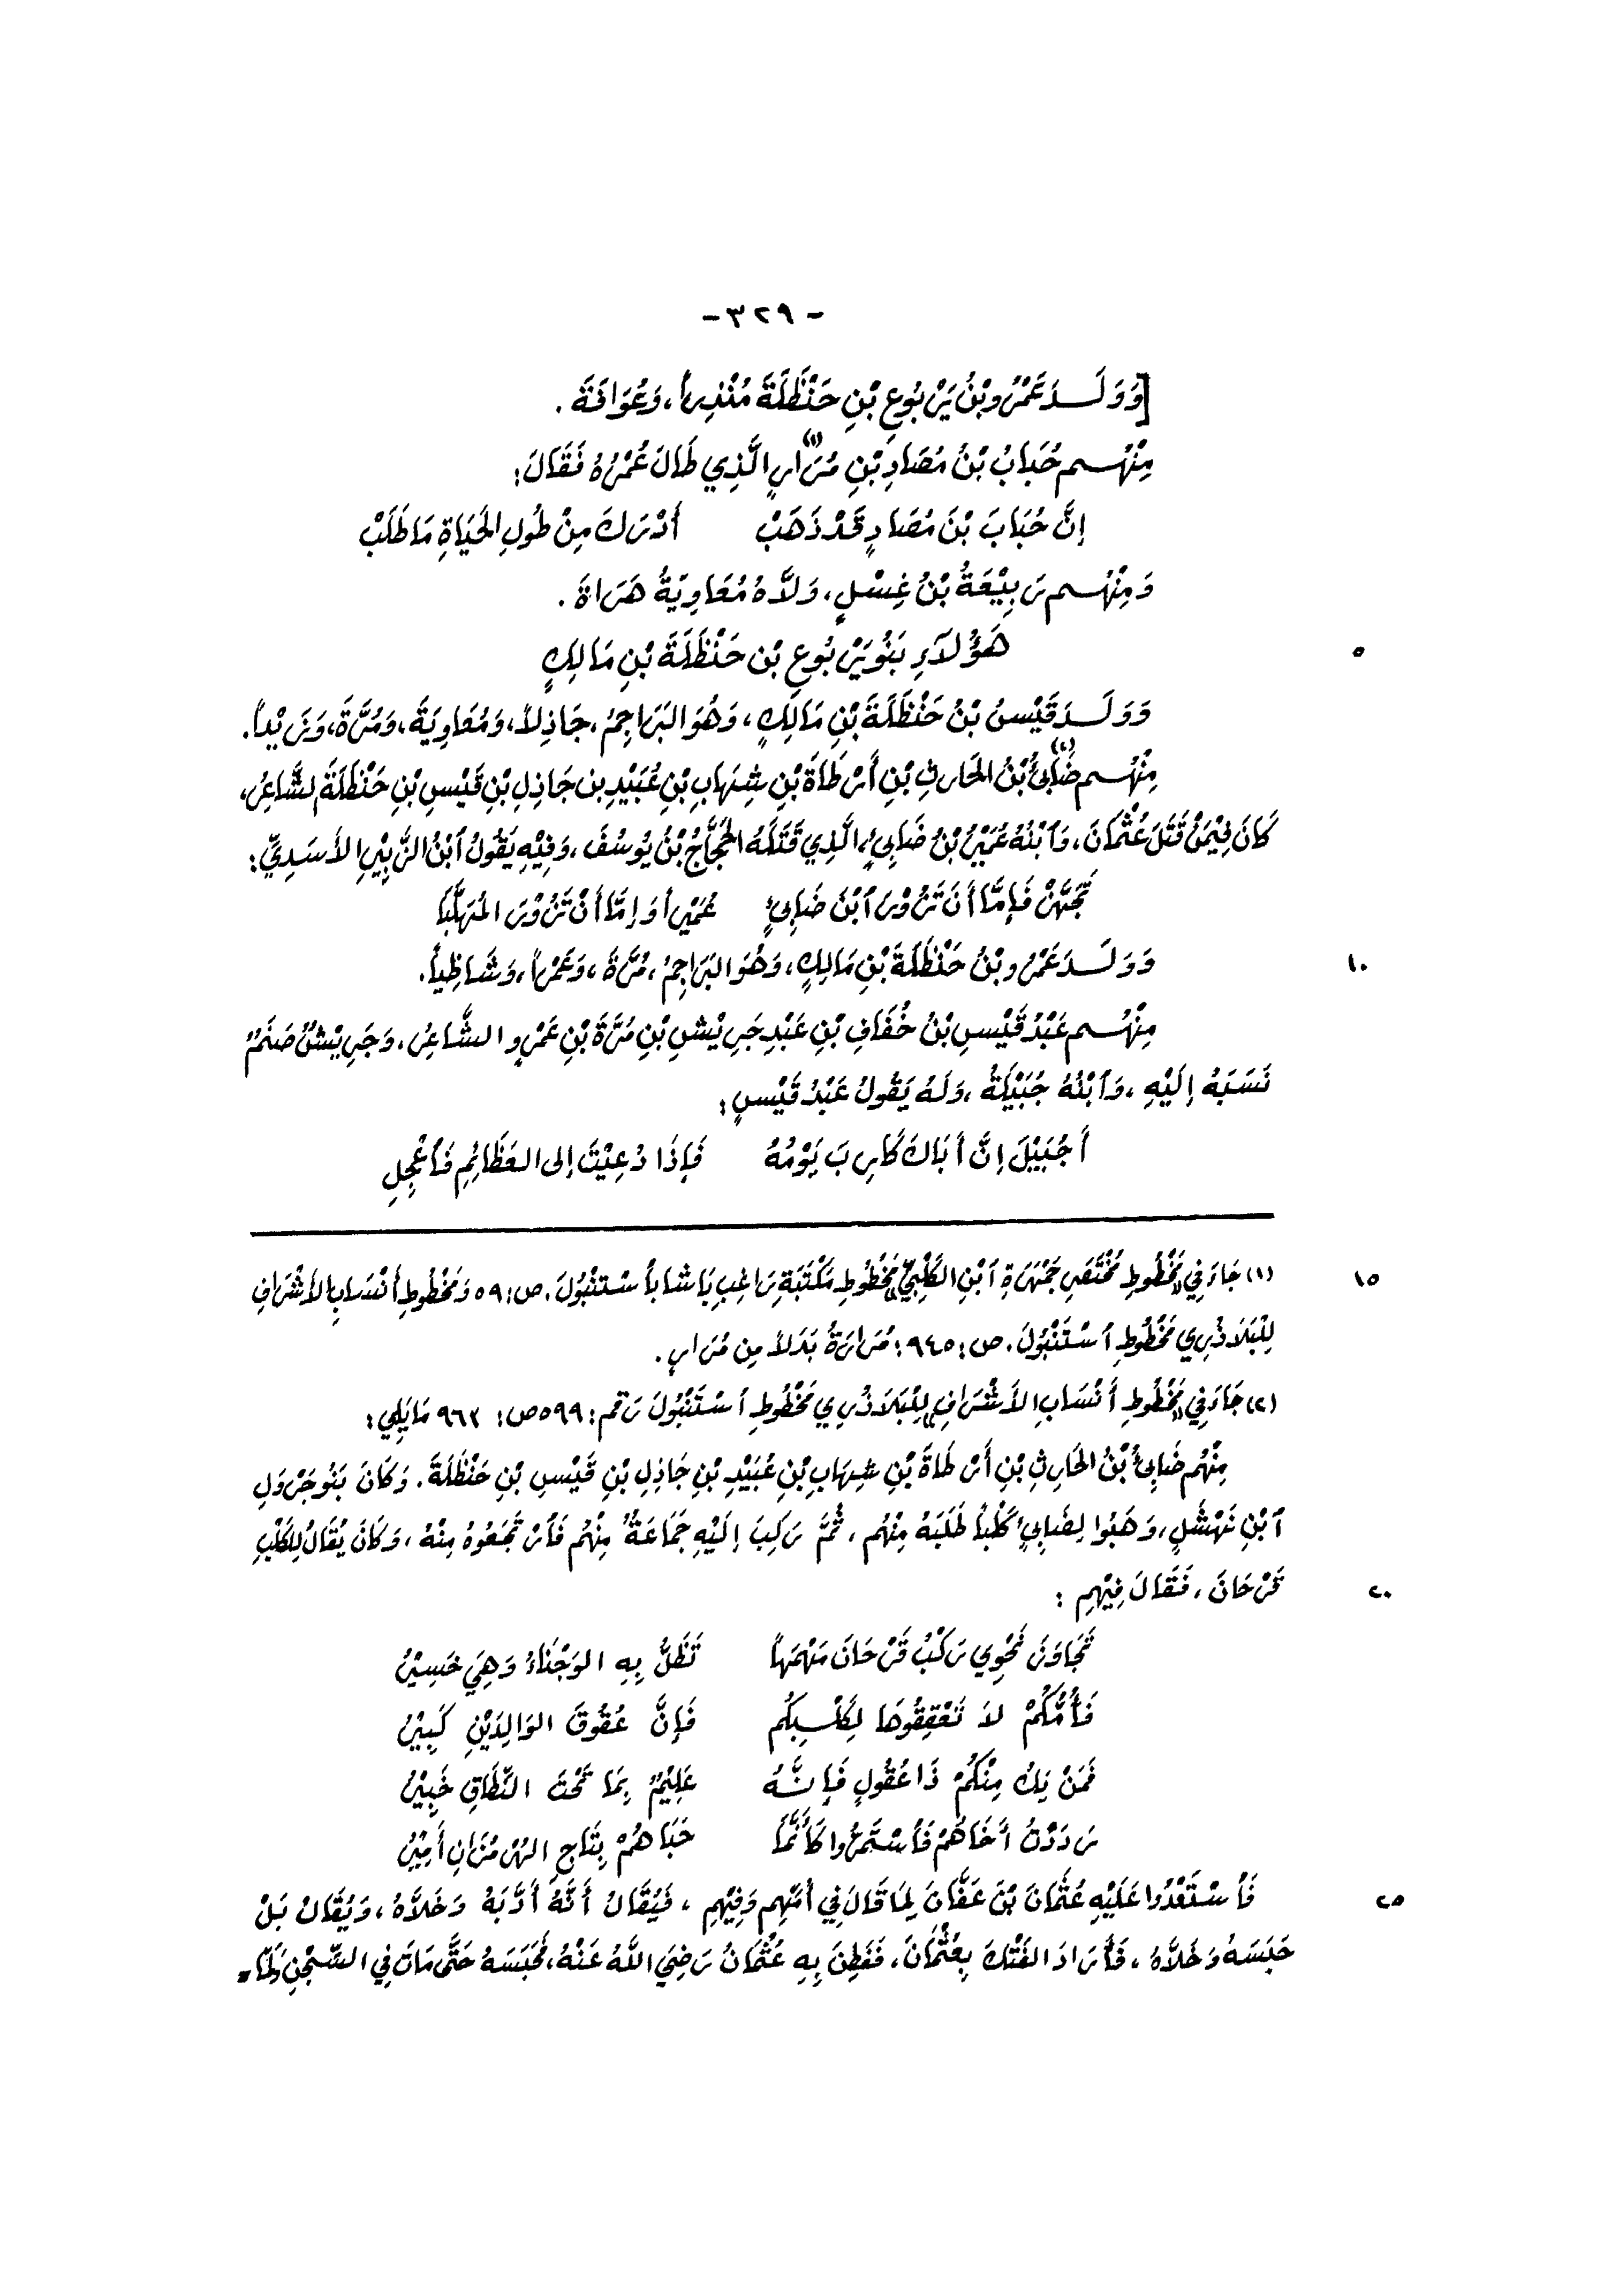 - ٣٢٩ -
[وَوَلَدَ عَمْرُو بْنُ يَرْبُوعِ بْنِ حَنْظَلَةَ مُنْذِراً، وَعُوَافَةَ .
مِنْهُم حُبَابُ بْنُ مُصَادِ بْنِ مُرَارٍ (١) الَّذِي طَالَ عُمْرُهُ فَقَالَ:
إِنَّ حُبَابَ بْنَ مُصَادٍ قَدْ ذَهَبْ أَدْرَكَ مِنْ طُولِ الحَيَاةِ مَا طَلَبْ
وَمِنْهُم رَبِيْعَةُ بْنُ غِسْلٍ، وَلَّاهُ مُعَاوِيَةُ هَرَاةَ .
هَؤُلَاءِ بَنُو يَرْبُوعِ بْنِ حَنْظَلَةَ بْنِ مَالِكٍ
٥
وَوَلَدَ قَيْسُ بْنُ حَنْظَلَةَ بْنِ مَالِكٍ، وَهُوَ البَرَاجِمُ، جَاذِلاً، وَمُعَاوِيَةَ، وَمُرَّةَ، وَزَيْداً.
مِنْهُم ضَابِئُ (٢) بْنُ الحَارِثِ بْنِ أَرْطَاةَ بْنِ شِهَابِ بْنِ عُبَيْدِ بن جَاذِلِ بْنِ قَيْسِ بْنِ حَنْظَلَةَ الشَّاعِرُ،
كَانَ فِيْمَنْ قَتَلَ عُثْمَانَ، وَٱبْنُهُ عُمَيْرُ بْنُ ضَابِئٍ، الَّذِي قَتَلَهُ الحَجَّاجُ بْنُ يُوسُفَ، وَفِيْهِ يَقُولُ ٱبْنُ الزَّبِيْرِ الأَسَدِيِّ:
تَجَهَّزْ فَإِمَّا أَنْ تَزُوْرَ ٱبْنَ ضَابِئٍ عُمَيْراً وَإِمَّا أَنْ تَزُوْرَ المُهَلَّبَا
وَوَلَدَ عَمْرُو بْنُ حَنْظَلَةَ بْنِ مَالِكٍ، وَهُوَ البَرَاجِمُ، مُرَّةَ، وَعَمْراً، وَشَاظِياً.
١٠
مِنْهُم عَبْدُ قَيْسِ بْنُ خُفَافِ بْنِ عَبْدِ جَرِيْشِ بْنِ مُرَّةَ بْنِ عَمْرٍو الشَّاعِرُ، وَجَرِيْشٌ صَنَمٌ
نَسَبَهُ إِلَيْهِ، وَٱبْنُهُ جُبَيْلَةُ، وَلَهُ يَقُولُ عَبْدُ قَيْسٍ:
أَجُبَيْلَ إِنَّ أَبَاكَ كَارِبَ يَوْمُهُ فَإِذَا دُعِيْتَ إِلى العَظَائِمِ فَٱعْجِلِ
(١) جَاءَ فِي مَخْطُوطِ مُخْتَصَرِ جَمْهَرَةِ ٱبْنِ الكَلْبِيِّ مَخْطُوطِ مَكْتَبَةِ رَاغِب بَاشَا بأسْتنْبُولَ. ص: ٥٩ وَمَخْطُوطِ أَنْسَابِ الأَشْرَافِ
١٥
لِلْبَلَاذُرِي مَخْطُوطِ أسْتَنْبُولَ. ص: ٩٤٥: مُرَارَةُ بَدَلاً مِن مُرَارٍ.
(٢) جَاءَ فِي مَخْطُوطِ أَنْسَابِ الأَشْرَافِ لِلْبَلَاذُرِي مَخْطُوطِ أسْتَنْبُولَ رَقم: ٥٩٩ ص: ٩٦٣ مَا يَلِي:
مِنْهُم ضَابِئُ بْنُ الحَارِثِ بْنِ أَرْطَاةَ بْنِ شِهَابِ بْنِ عُبَيْدِ بْنِ جَاذِلِ بْنِ قَيْسِ بْنِ حَنْظَلَةَ. وَكَانَ بَنُو جَرْوَلِ
ٱبْنِ نَهْشَلٍ، وَهَبُوا لِضَابِئٍ كَلْباً طَلَبَهُ مِنْهُم، ثُمَّ رَكِبَ إِلَيْهِ جَمَاعَةٌ مِنْهُم فَٱرْتَجَعُوهُ مِنْهُ، وَكَانَ يُقَالُ لِلكَلْبِ
قَرْحَانَ، فَقَالَ فِيْهِم:
٢٠
تَجَاوَزَ نَحْوِي رَكْبُ قَرْحَانَ مَهْمَهاً تَظَلُّ بِهِ الوَجْنَاءُ وَهِيَ حَسِيْرُ
فَأُمُّكُمْ لاَ تَعْقِقُوهَا لِكَلْبِكُم فَإِنَّ عُقُوقَ الوَالِدَيْنِ كَبِيْرُ
فَمَنْ يَكُ مِنْكُمْ ذَا عُقُولٍ فَإِنَّهُ عَلِيْمٌ بِمَا تَحْتَ النِّطَاقِ خَبِيْرُ
رَدَدْتُ أَخَاهُمْ فَٱسْتَمَرُّوا كَأَنَّمَا حَبَاهُمْ بِتَاجِ الهُرْمُزَانِ أَمِيْرُ
فَٱسْتَعْدُوا عَلَيْهِ عُثْمَانَ بْنَ عَفَّانَ لِمَا قَالَ فِي أُمِّهِم وَفِيْهِم، فَيُقَالُ أَنَّهُ أَدَّبَهُ وَخَلَّاهُ، وَيُقَالُ بَلْ
٢٥
حَبَسَهُ وَخَلَّاهُ، فَأَرَادَ الفَتْكَ بِعُثْمَانَ، فَفَطِنَ بِهِ عُثْمَانُ رَضِيَ اللَّهُ عَنْهُ، فَحَبَسَهُ حَتَّى مَاتَ فِي السِّجْنِ وَلَمَّا =